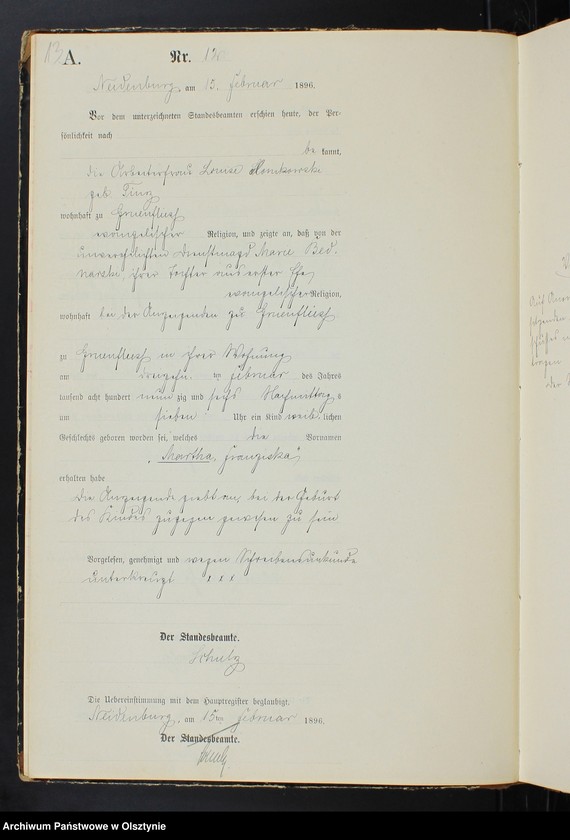 13
A.
Nr. 13
Neidenburg, am 15. Februar 1896.
Vor dem unterzeichneten Standesbeamten erschien heute, der Per-
sönlichkeit nach
be kannt,
die Arbeiterfrau Louise
geb.
wohnhaft zu Gruenfliess
evangelischer Religion, und zeigte an, daß von der
unverehelichten Dienstmagd Marie Bed-
narski, ihrer Tochter aus erster Ehe,
evangelischer Religion,
wohnhaft bei der Anzeigenden zu Gruenfliess
zu Gruenfliess in ihrer Wohnung
am ten Februar des Jahres
tausend acht hundert neun zig und sechs Nachmittags
um sieben Uhr ein Kind weib lichen
Geschlechts geboren worden sei, welches die Vornamen
"Martha, Franziska"
erhalten habe
Die Anzeigende giebt an, bei der Geburt
des Kindes zugegen gewesen zu sein
Vorgelesen, genehmigt und wegen Schreibensunkunde
unterkreuzt x x x
Der Standesbeamte.
Schulz
Die Uebereinstimmung mit dem Hauptregister beglaubigt.
Neidenburg, am 15ten Februar 1896.
Der Standesbeamte.
Schulz
Auf
der
Archiwum Państwowe w Olsztynie